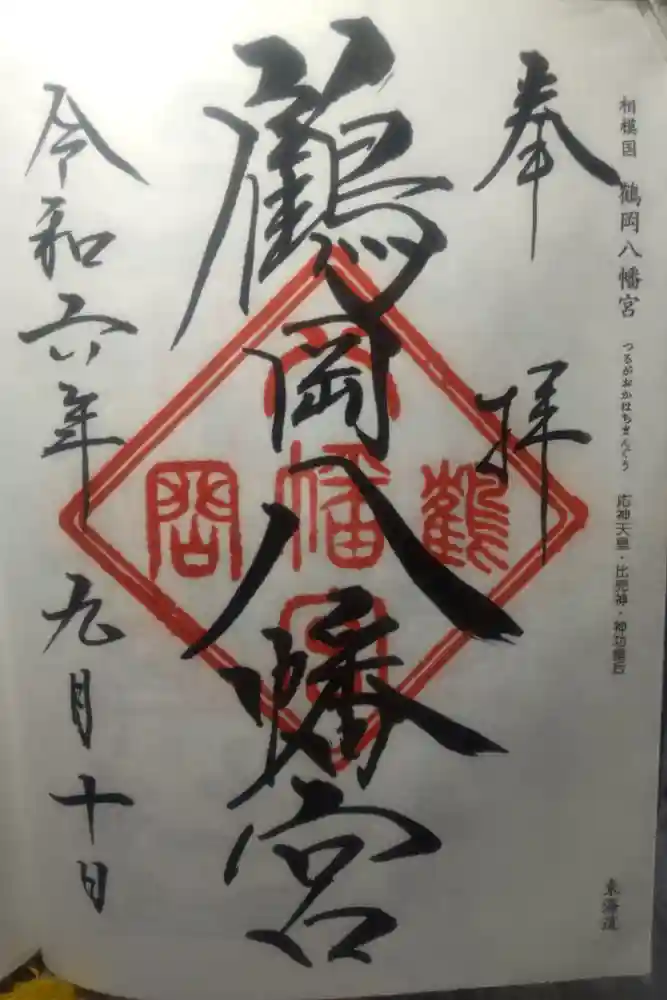 相模国 鶴岡八幡宮 つるがおかはちまんぐう 応神天皇・比売神・神功皇后
東海道
奉拝
鶴岡八幡宮
鶴
八幡宮
岡
令和六年九月十日